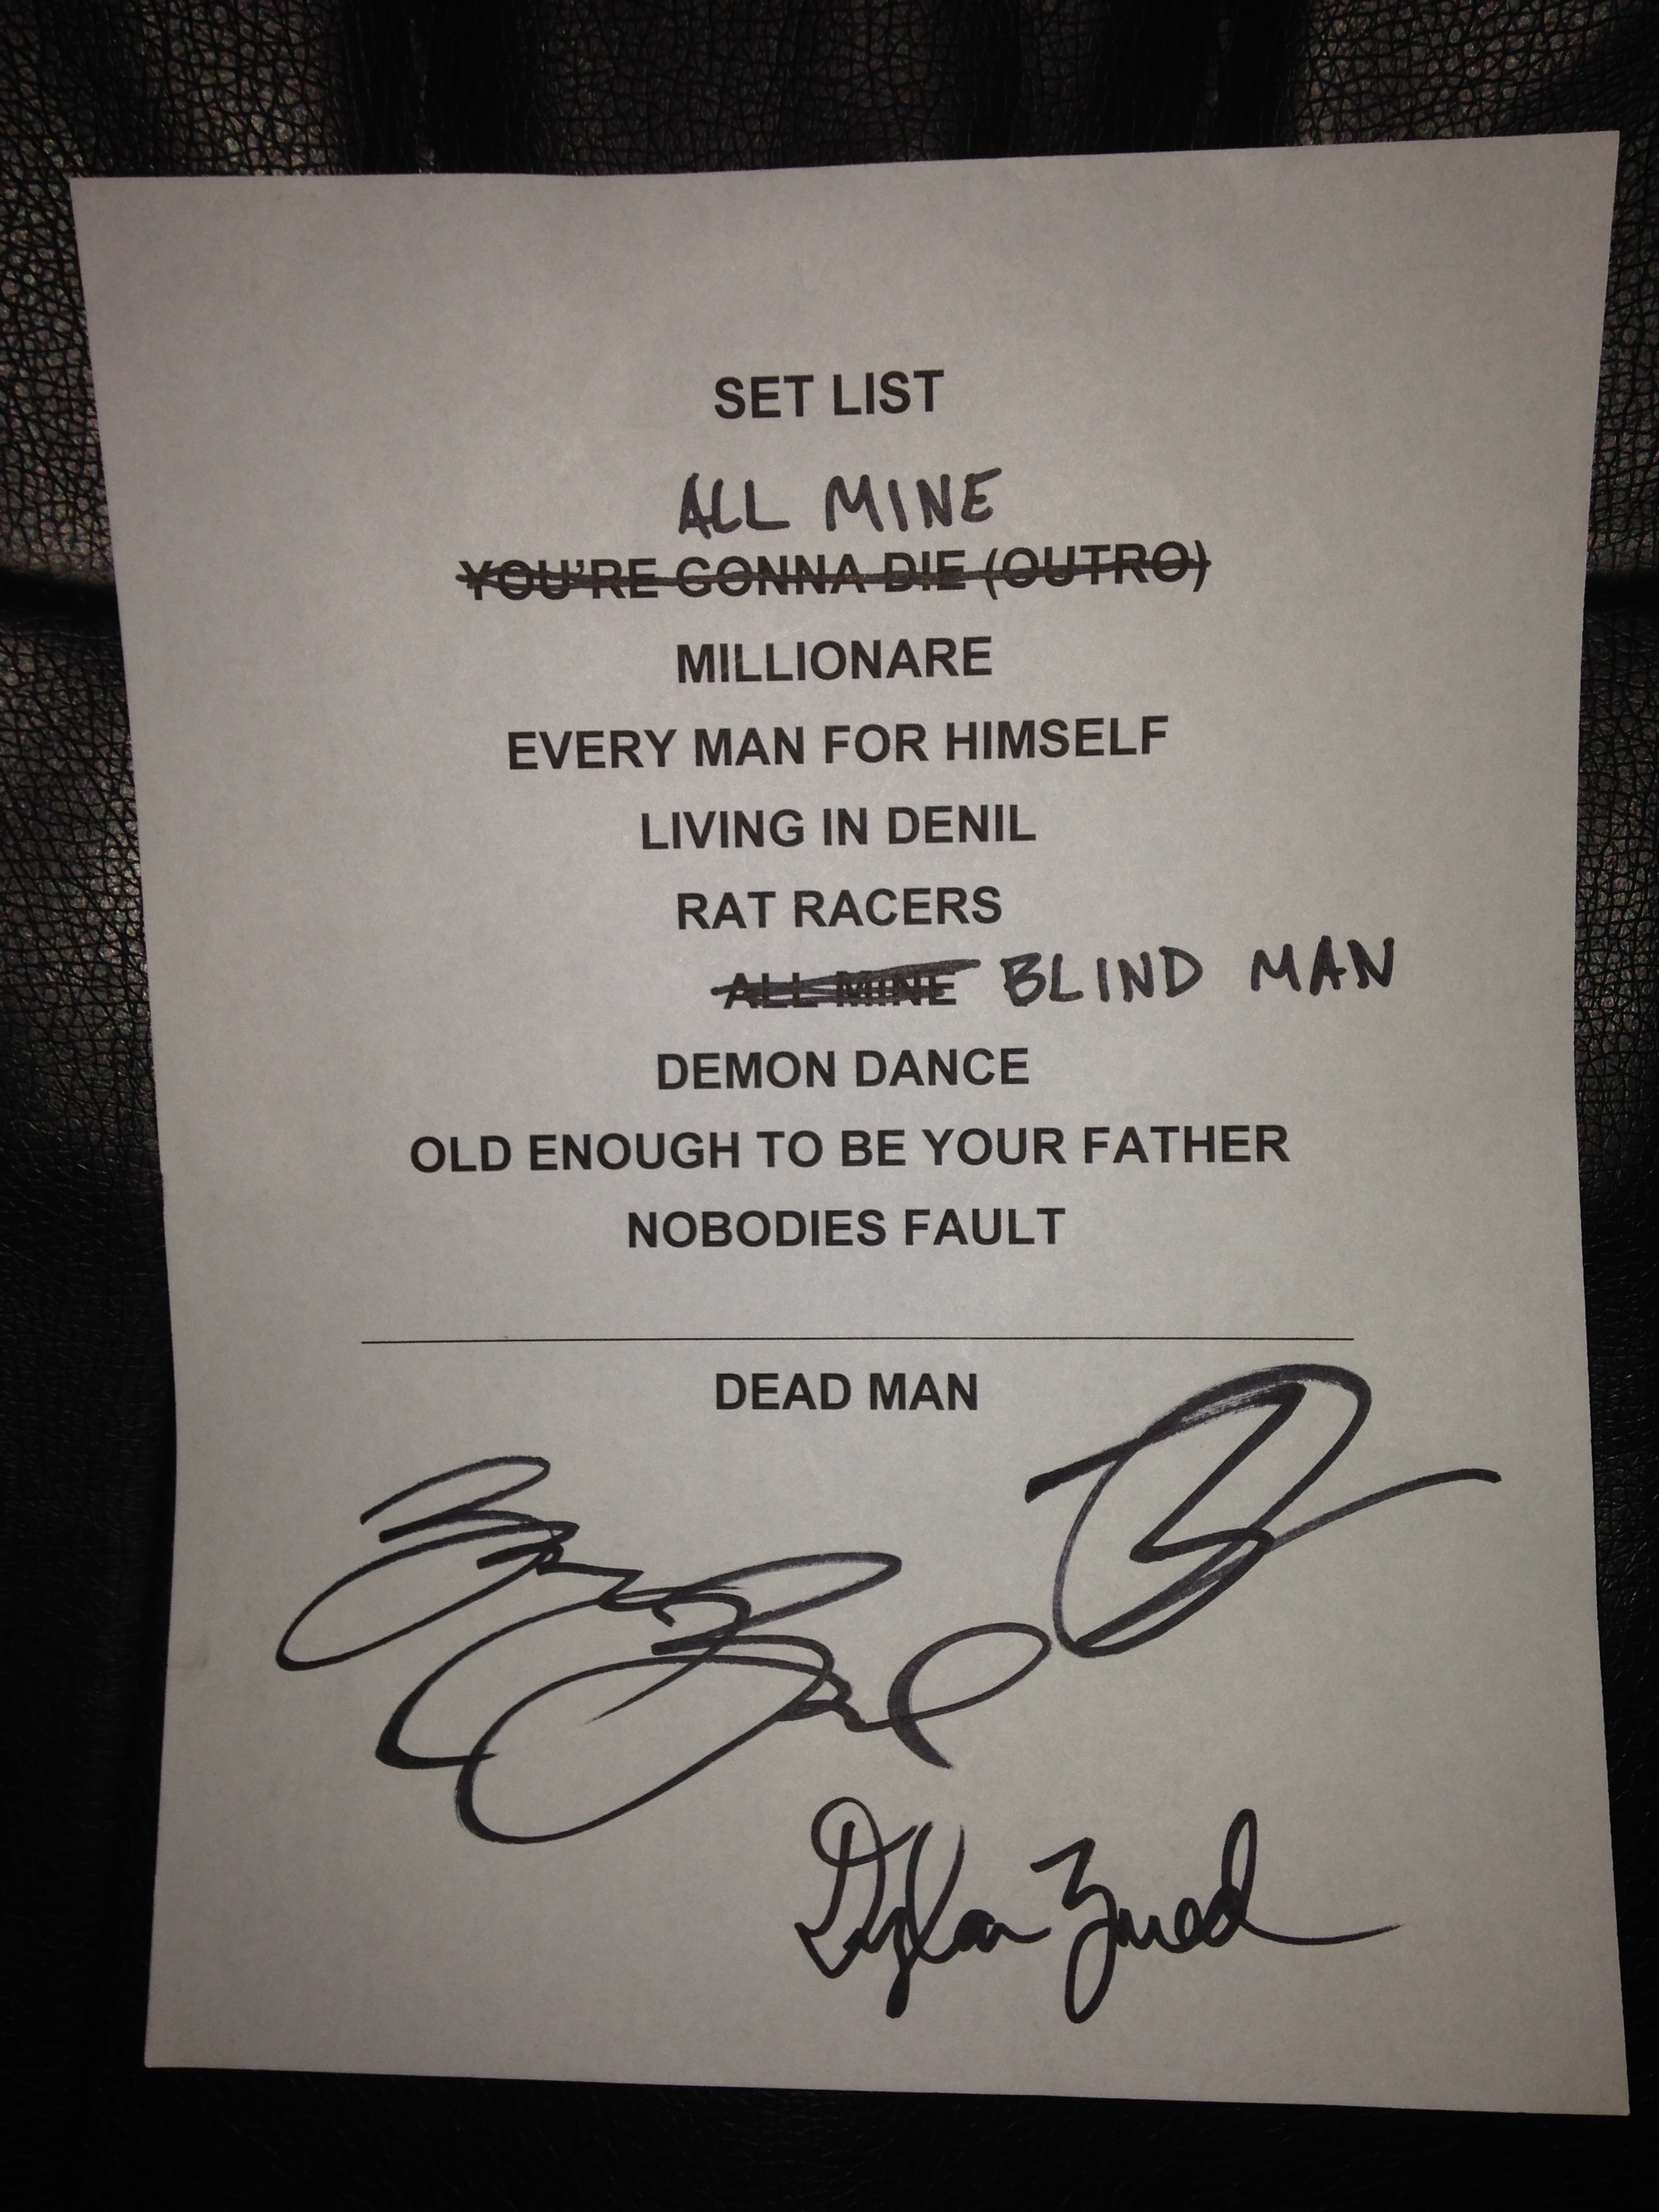 SET LIST
ALL MINE
YOU'RE GONNA DIE (OUTRO)
MILLIONARE
EVERY MAN FOR HIMSELF
LIVING IN DENIL
RAT RACERS
ALL MINE BLIND MAN
DEMON DANCE
OLD ENOUGH TO BE YOUR FATHER
NOBODIES FAULT
DEAD MAN
Dylan